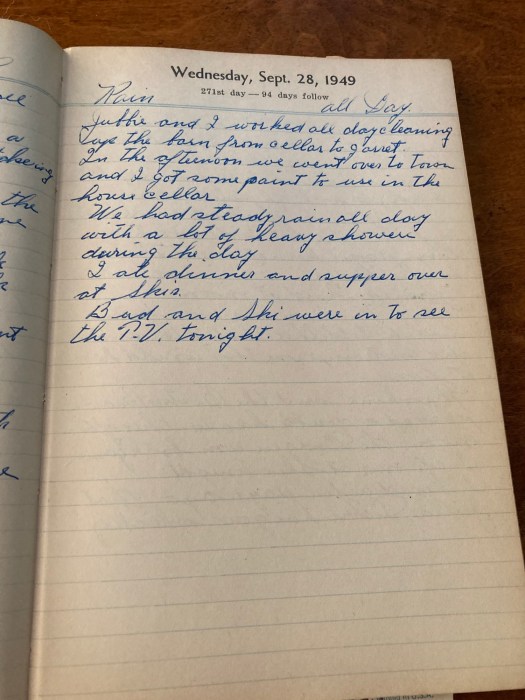 Wednesday, Sept. 28, 1949
271st day — 94 days follow
Rain all Day.
Jubbie and I worked all day cleaning
up the barn from cellar to garret.
In the afternoon we went over to Town
and I got some paint to use in the
house cellar
We had steady rain all day
with a lot of heavy showers
during the day
I ate dinner and supper over
at Skis.
Bud and Ski were in to see
the T-V. tonight.